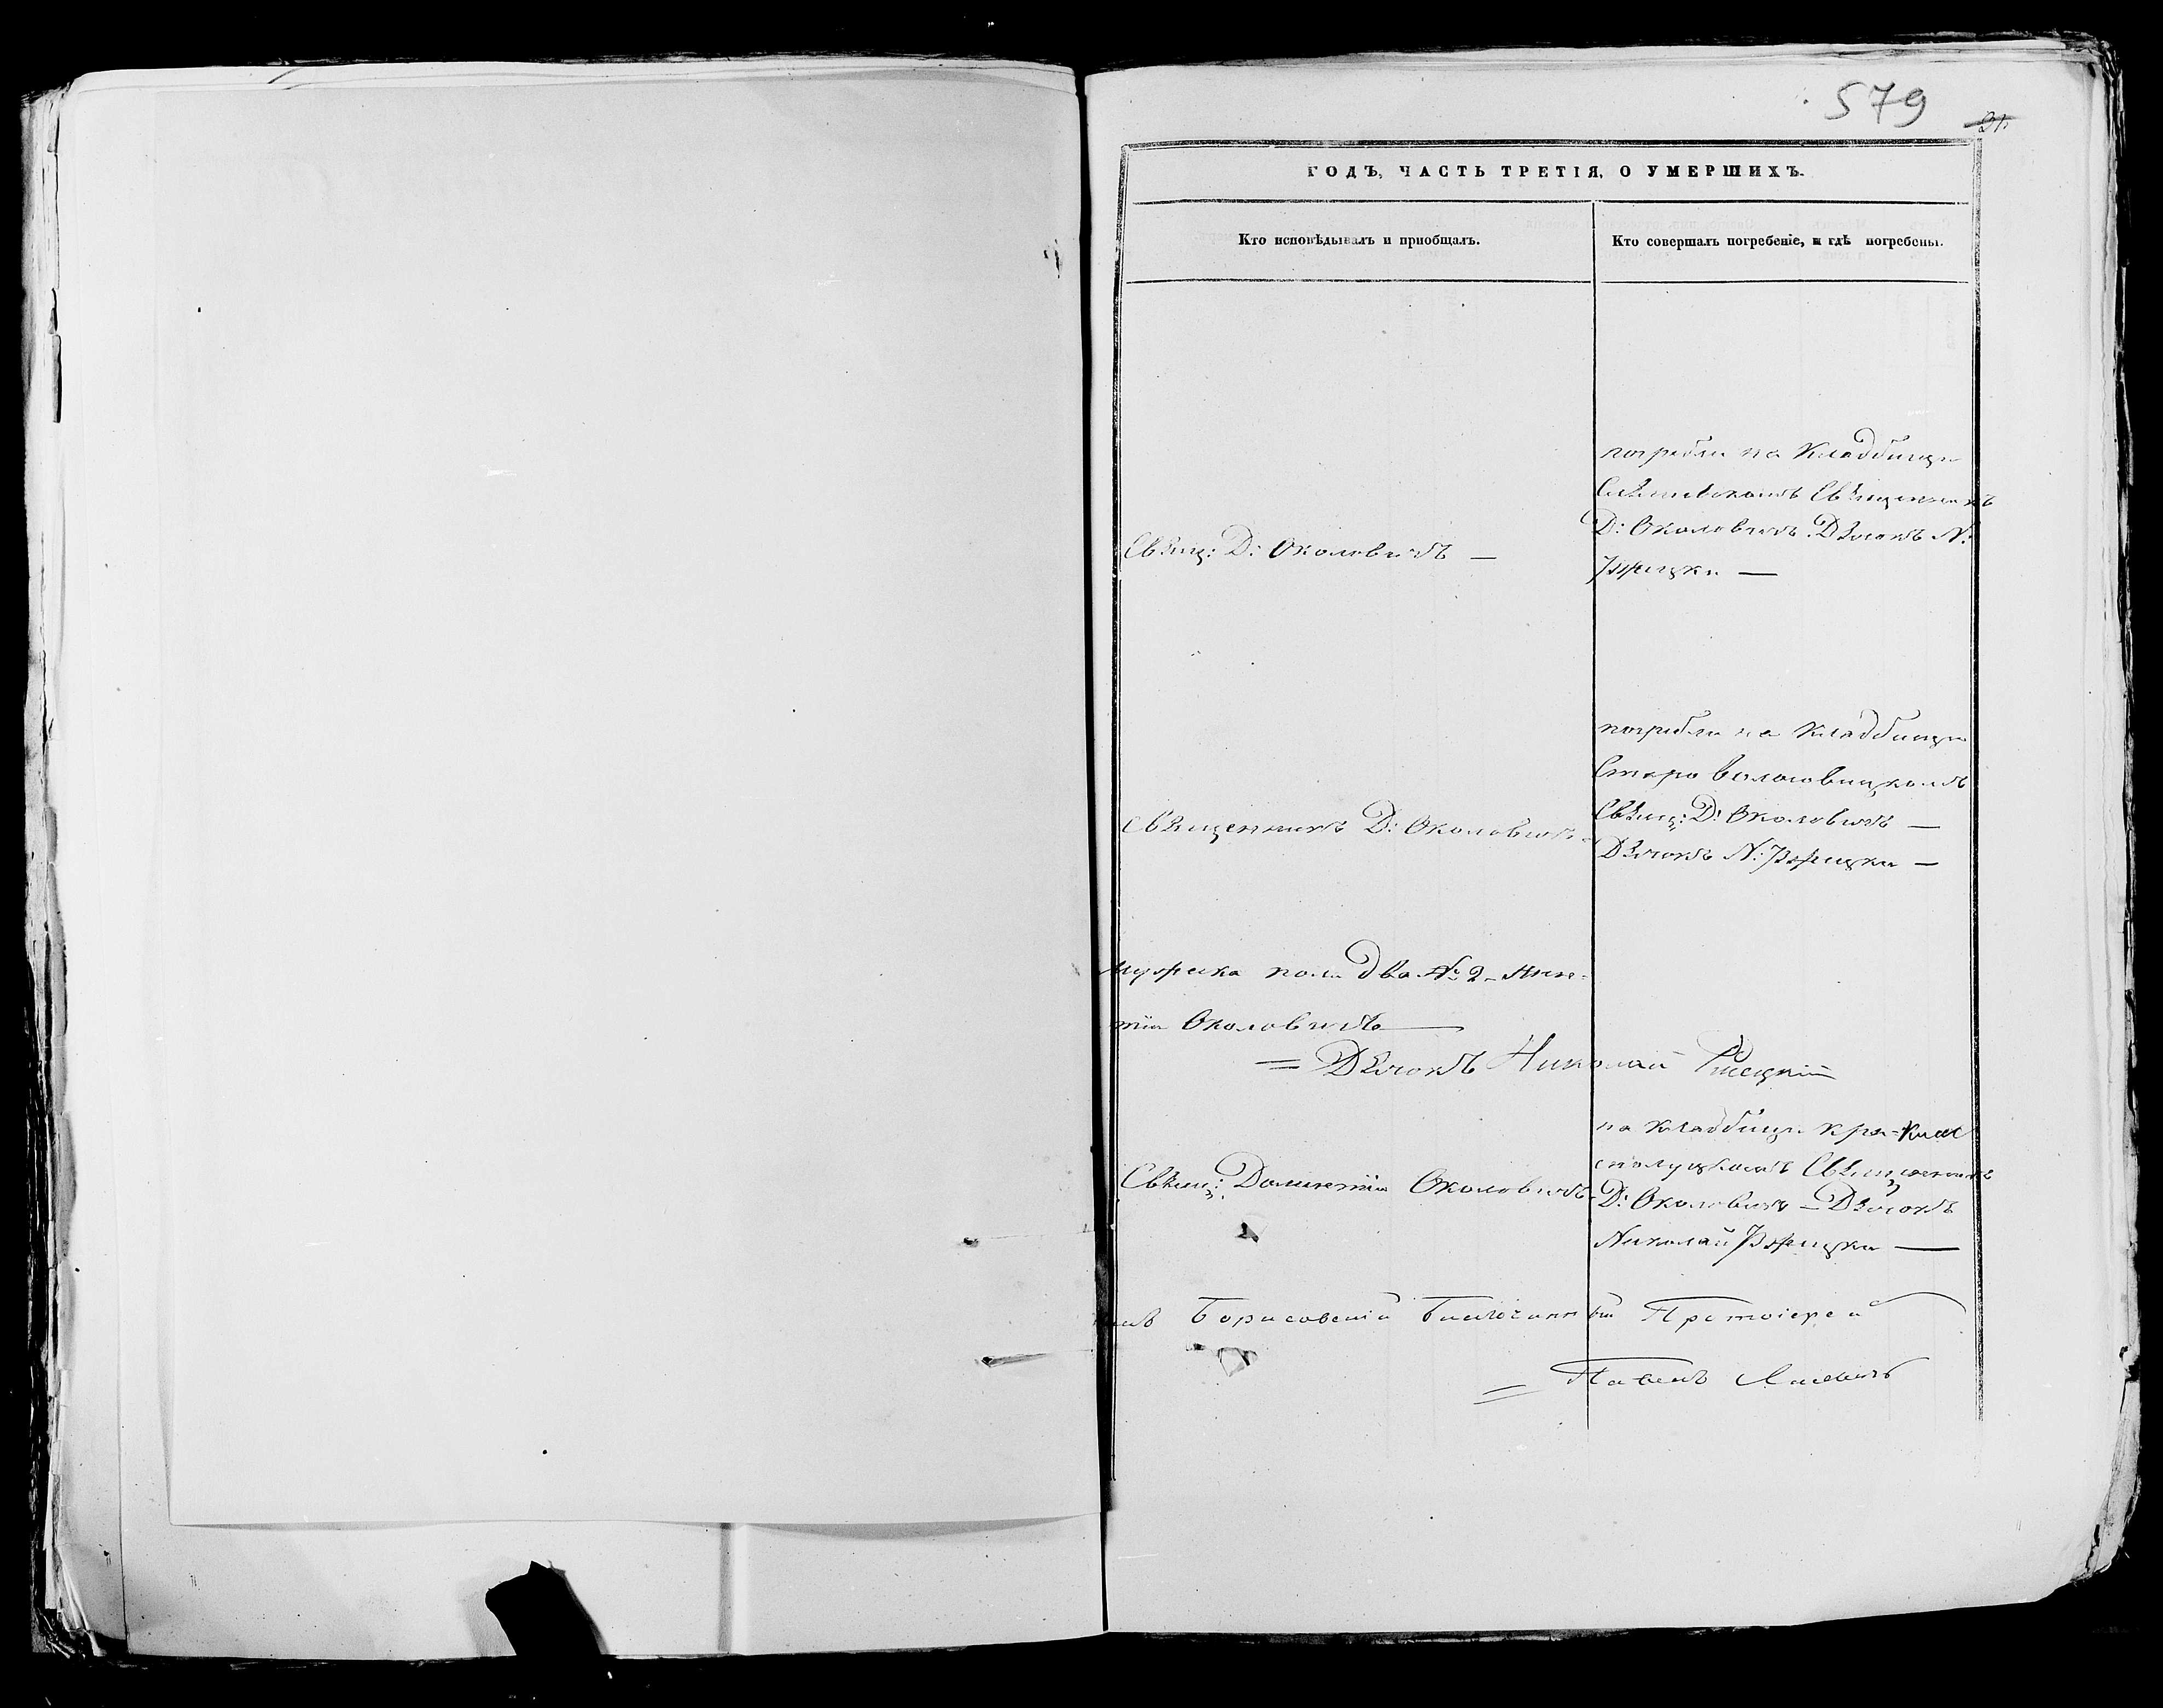 579
31.
ГОДЪ, ЧАСТЬ ТРЕТІЯ, О УМЕРШИХЪ.
Кто исповѣдывалъ и пріобщалъ.
Кто совершалъ погребеніе, и гдѣ погребены.
Свящ: Д: Околовичъ —
погребли на Кладбищи
Священникъ
Д: Околовичъ. Дьячокъ N:
Ржецки —
Священникъ Д: Околовичъ
погребли на Кладбищи
Старо
Свящ: Д: Околовичъ —
Дьячокъ N: Ржецки —
Мужеска пола два № 2
Околовичъ —
= Дьячокъ Николай
Свящ: Околовичъ
на кладбищи
Священникъ
Д: Околовичъ — Дьячокъ
Николай Ржецки —
Борисовскій Благочинный Протоіерей
= Павелъ